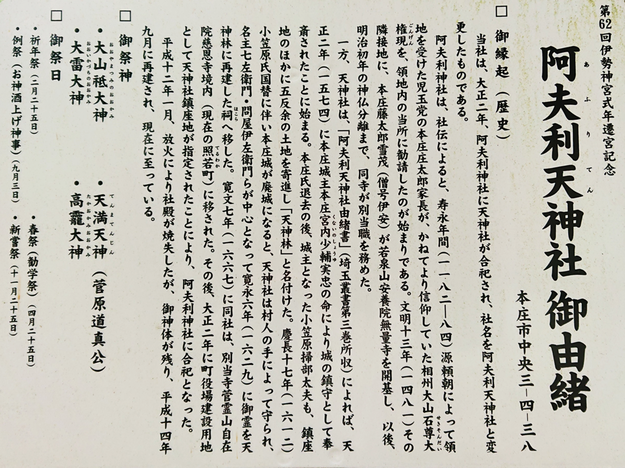 第62回伊勢神宮式年遷宮記念
阿夫利天神社 御由緒
あふりてん
本庄市中央三-四-三八
□ 御縁起（歴史）
当社は、大正二年、阿夫利神社に天神社が合祀され、社名を阿夫利天神社と変
更したものである。
阿夫利神社は、社伝によると、寿永年間（一一八二―八四）源頼朝によって領
地を受けた児玉党の本庄庄太郎家長が、かねてより信仰していた相州大山石尊大
せきそんだい
権現を、領地内の当所に勧請したのが始まりである。文明十三年（一四八一）その
ごんげん
隣接地に、本庄藤太郎雪茂（僧号伊安）が若泉山安養院無量寺を開基し、以後、
明治初年の神仏分離まで、同寺が別当職を務めた。
一方、天神社は、「阿夫利天神社由緒書」（埼玉叢書第三巻所収）によれば、天
正二年（一五七四）に本庄城主本庄宮内少輔実忠の命により城の鎮守として奉
くないのしょうゆう
斎されたことに始まる。本庄氏退去の後、城主となった小笠原掃部太夫も、鎮座
地のほかに五反余の土地を寄進し「天神林」と名付けた。慶長十七年（一六一二）
小笠原氏国替に伴い本庄城が廃城になると、天神社は村人の手によって守られ、
名主七左衛門・問屋伊左衛門らが中心となって寛永六年（一六二九）に御霊を天
神林に再建された祠へ移した。寛文七年（一六六七）に同社は、別当寺菅霊山自在
ほこら
院慈恩寺境内（現在の照若町）に移された。その後、大正二年に町役場建設用地
てるわか
として天神社鎮座地が指定されたことにより、阿夫利神社に合祀となった。
平成十二年一月、放火により社殿が焼失したが、御神体が残り、平成十四年
九月に再建され、現在に至っている。
□ 御祭神
・大山祗大神
おおやまづみのおおかみ
・天満天神（菅原道真公）
てんまんてんじん
・大雷大神
おおいかづちのおおかみ
・高龗大神
たかおかみのおおかみ
□ 御祭日
・祈年祭（二月二十五日）
・春祭（勧学祭）（四月二十五日）
・例祭（お神酒上げ神事）（九月三日）
・新嘗祭（十一月二十五日）